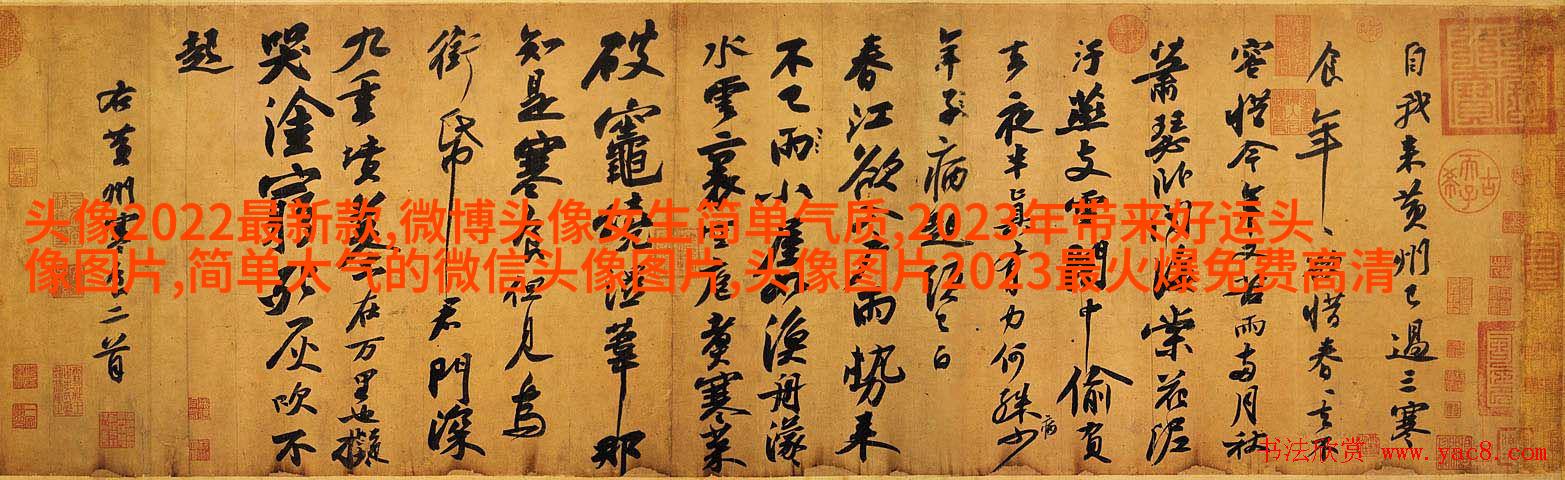 自我来黄州已過三寒
食年〻欲惜春〻去不
容惜今年又苦雨兩月秋
蕭瑟卧聞海棠花泥
汙燕支雪闇中偷負
去夜半真有力何殊少
病
年子病起頭已白
春江欲入户雨勢来
不已雨小屋如漁舟濛
水雲裏空庖煮寒菜
破竈燒濕葦那
知是寒食但見烏
銜帋君門深
九重墳墓在万里也擬
哭塗窮死灰吹不
起
右黄州寒食二首
头像2022最新款,微博头像女生简单气质,2023年带来好运头
像图片,简单大气的微信头像图片,头像图片2023最火爆免费高清
书法欣赏 www.yac8.com